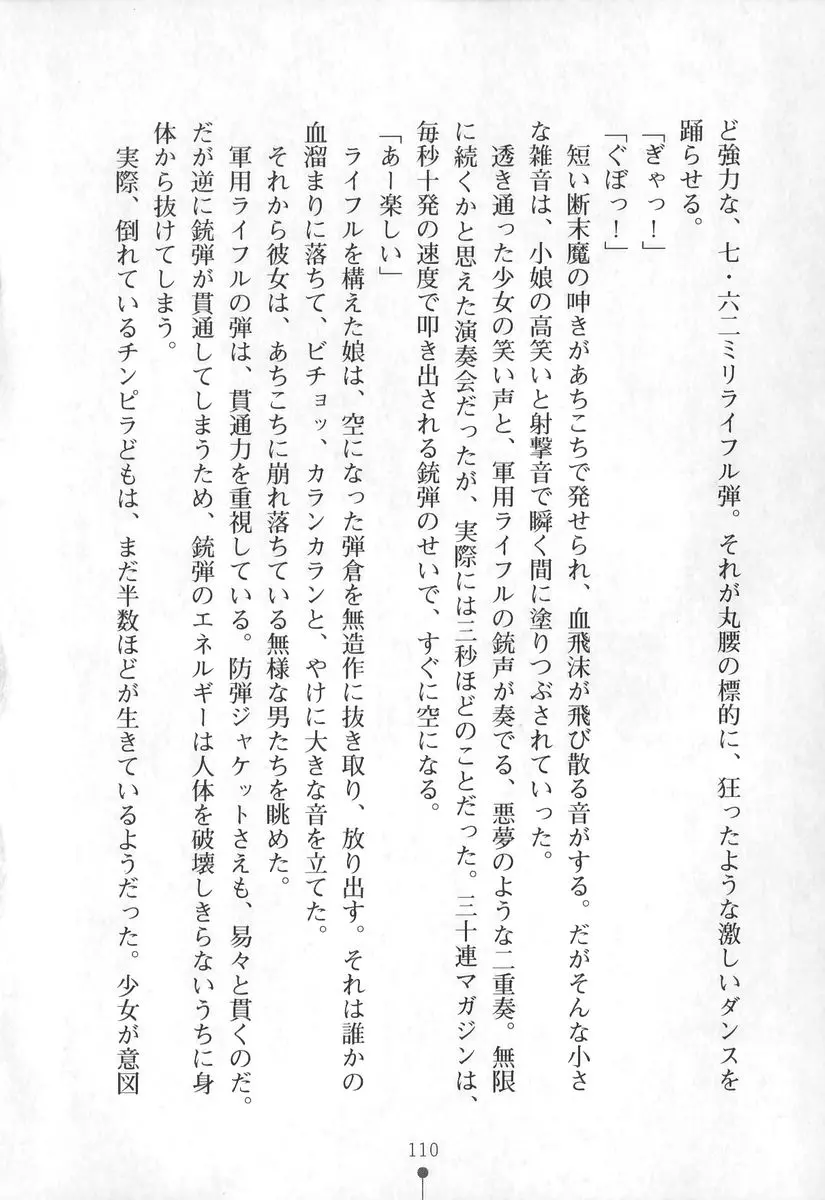 ど強力な、七・六二ミリライフル弾。それが丸腰の標的に、狂ったような激しいダンスを
踊らせる。
「ぎゃっ！」
「ぐぼっ！」
短い断末魔の呻きがあちこちで発せられ、血飛沫が飛び散る音がする。だがそんな小さ
な雑音は、小娘の高笑いと射撃音で瞬く間に塗りつぶされていった。
透き通った少女の笑い声と、軍用ライフルの銃声が奏でる、悪夢のような二重奏。無限
に続くかと思えた演奏会だったが、実際には三秒ほどのことだった。三十連マガジンは、
毎秒十発の速度で叩き出される銃弾のせいで、すぐに空になる。
「あー楽しい」
ライフルを構えた娘は、空になった弾倉を無造作に抜き取り、放り出す。それは誰かの
血溜まりに落ちて、ビチョッ、カランカランと、やけに大きな音を立てた。
それから彼女は、あちこちに崩れ落ちている無様な男たちを眺めた。
軍用ライフルの弾は、貫通力を重視している。防弾ジャケットさえも、易々と貫くのだ。
だが逆に銃弾が貫通してしまうため、銃弾のエネルギーは人体を破壊しきらないうちに身
体から抜けてしまう。
実際、倒れているチンピラどもは、まだ半数ほどが生きているようだった。少女が意図
110